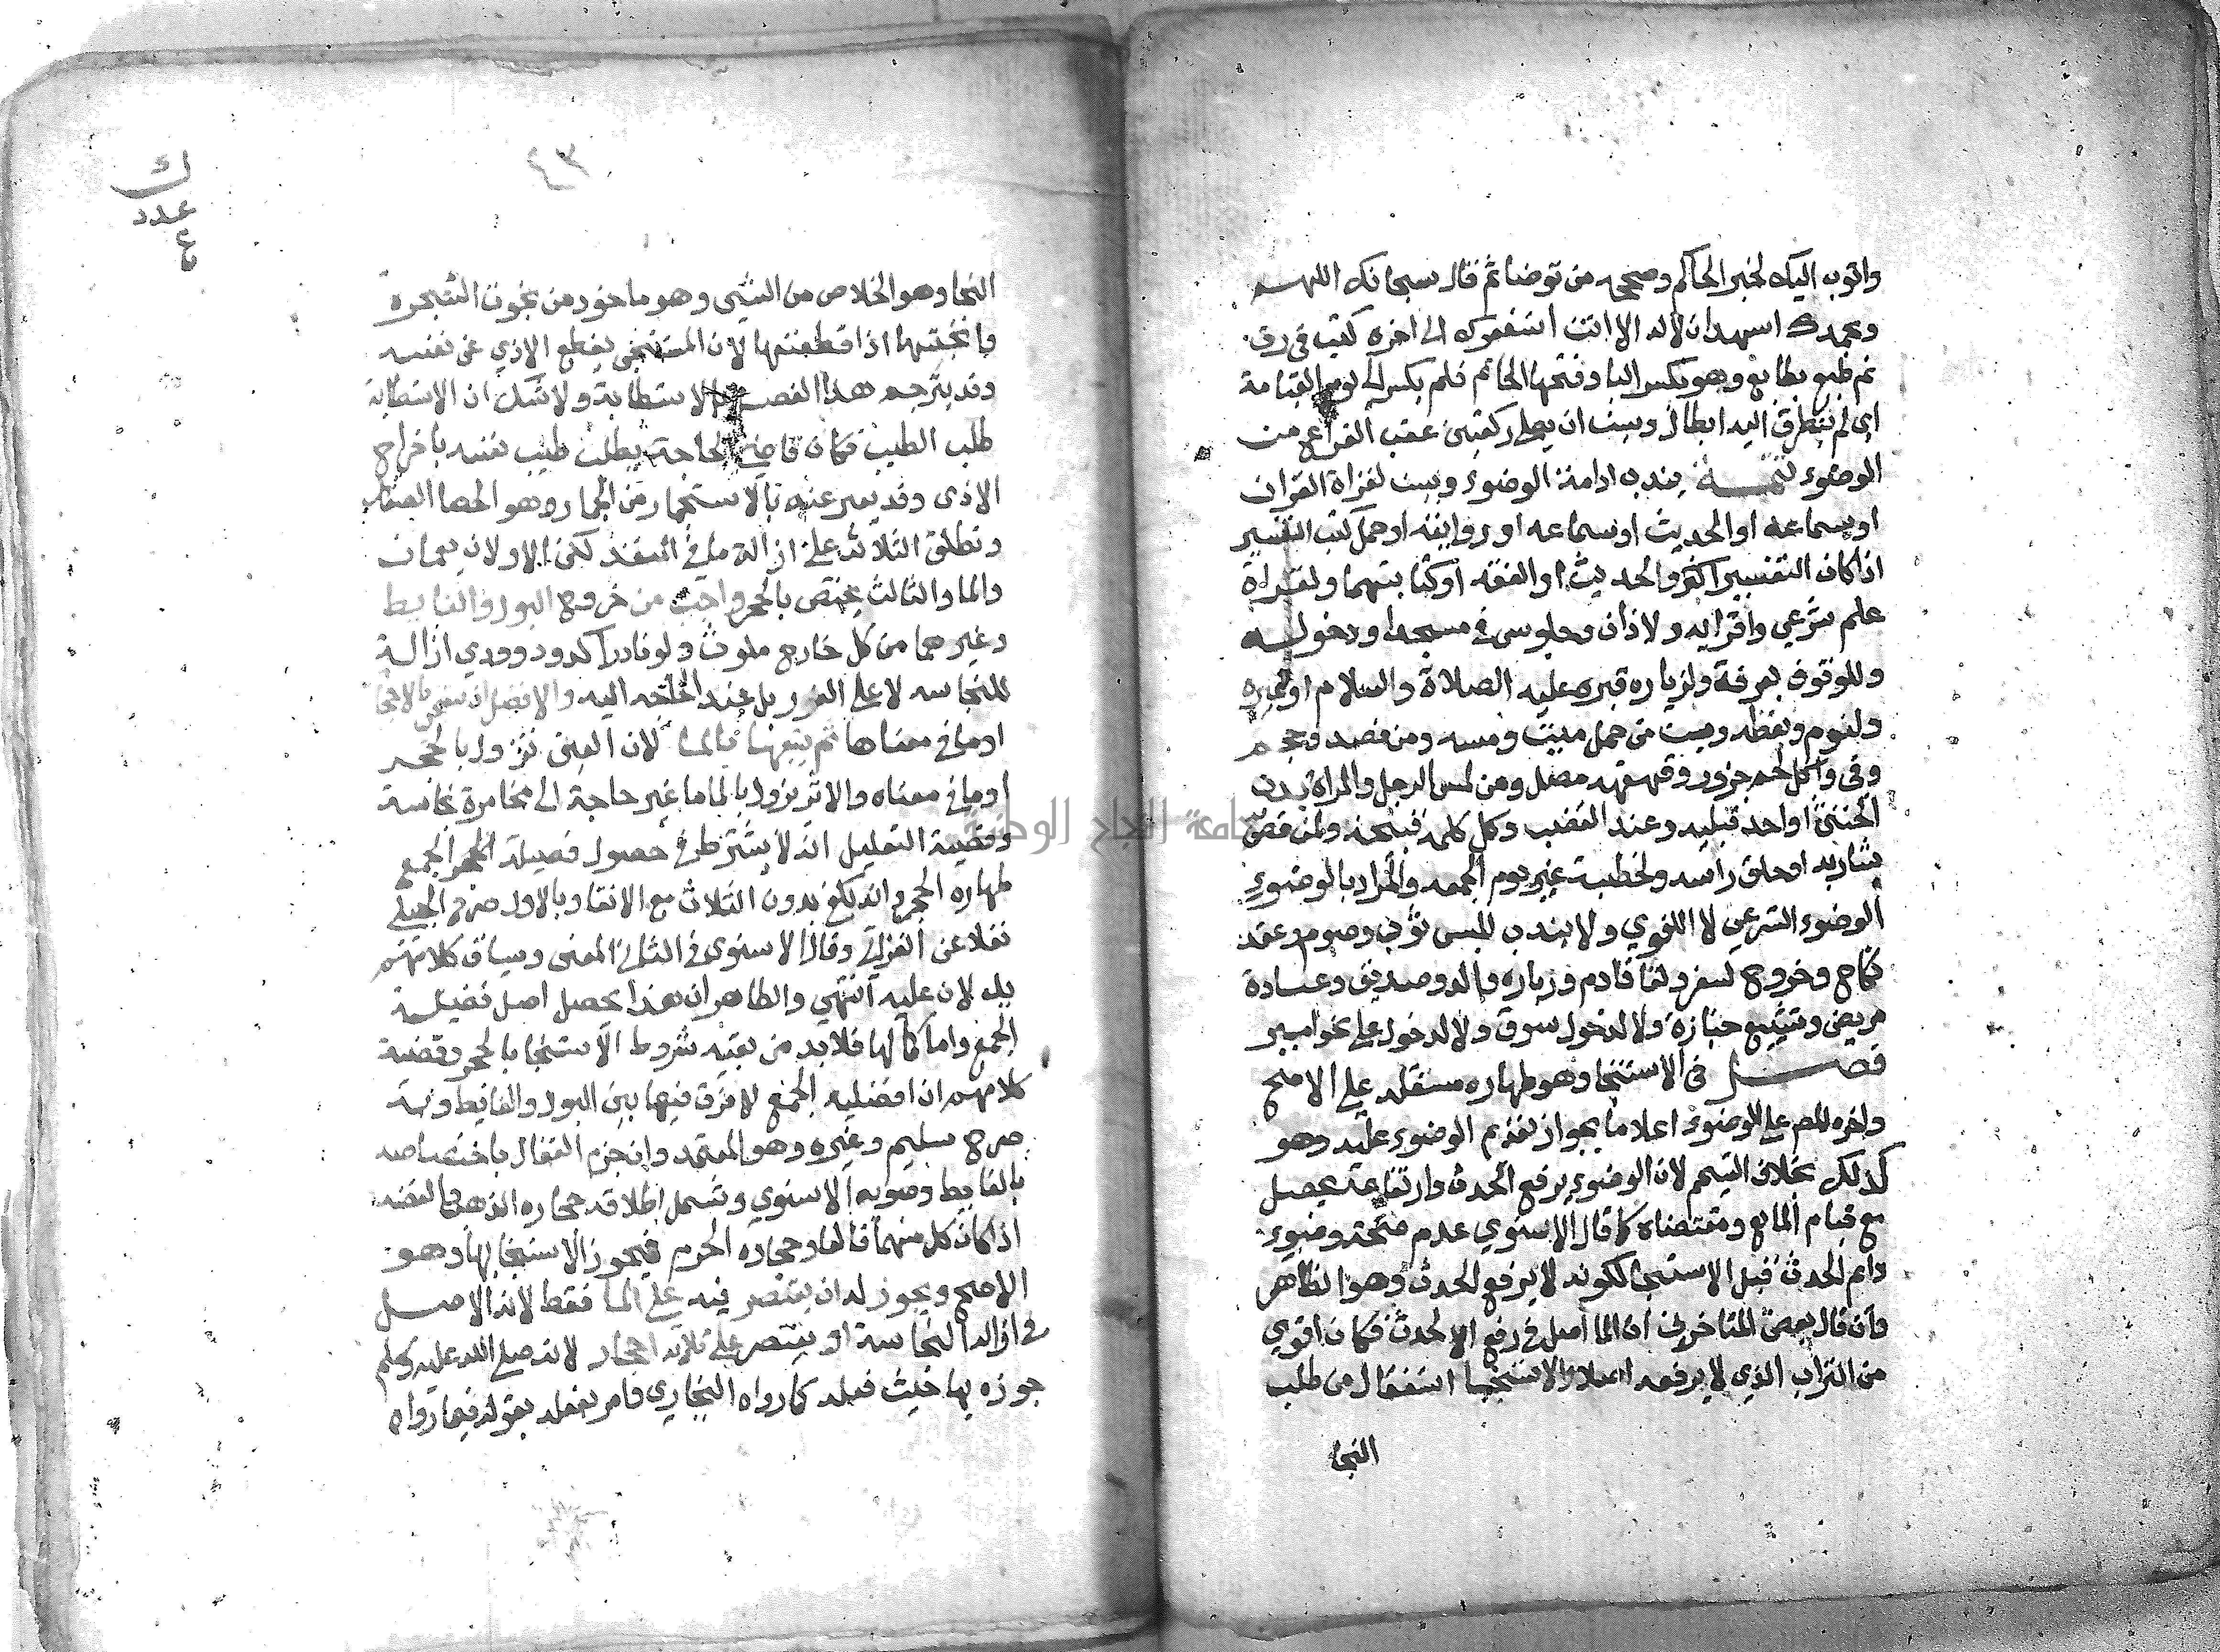 واتوب اليك لخبر الحاكم وصححه من توضا ثم قال سبحانك اللهم
وبحمدك اشهد ان لا اله الا انت استغفرك الى اخره كتب في رق
ثم طبع بطابع وهو بكسر الباء وفتحها الخاتم فلم يكسر الى يوم القيامة
اي لم يتطرق اليه ابطال ويسن ان يصلي ركعتين عقب الفراغ من
الوضوء تتمـــة يندب ادامة الوضوء ويسن لقراة القران
او سماعه او الحديث او سماعه او روايته او حمل كتب التفسير
اذا كان التفسير اكثر والحديث او الفقه او كتابتهما ولقراة
علم شرعي واقرايه ولاذان وجلوس في مسجد او دخوله
وللوقوف بعرفة ولزياره قبره عليه الصلاة والسلام او غيره
ولنوم ويقظه ويسن من حمل ميت ومسه ومن فصد وحجم
وقي واكل لحم جزور وقهقهه مصل ومن لمس الرجل والمراة بدن
الخنثى او احد قبليه وعند الغضب وكل كلمه قبيحه ولمن قص
شاربه او حلق راسه ولخطبة غير يوم الجمعه والمراد بالوضوء
الوضوء الشرعي لا اللغوي ولا يندب للبس ثوب وصوم وعقد
نكاح وخروج لسفر ولقا قادم وزياره والد وصديق وعيادة
مريض وتشييع جنازة ولا لدخول سوق ولا لدخول على نحو امير
فصـــل في الاستنجا وهو طهاره مستقله على الاصح
واخره المص على الوضوء اعلاما بجواز تقديم الوضوء عليه وهو
كذلك بخلاف التيمم لان الوضوء يرفع الحدث وارتفاعه يحصل
مع قيام المانع ومقتضاه كما قال الاسنوي عدم صحة وضوء
دايم الحدث قبل الاستنجا لكونه لا يرفع الحدث وهو الظاهر
وان قال بعض المتاخرين ان الما اصل في رفع الحدث فكان اقوي
من التراب الذي لا يرفعه اصلا والاستنجا استفعال من طلب
النجا
٤٣
ك
عدد
٤
النجا وهو الخلاص من الشيى وهو ماخوذ من نجوت الشجره
وانجيتها اذا قطعتها لان المستنجي يقطع الاذي عن نفسه
وقد يترجم هذا الفصل بالاستطابة ولا شك ان الاستطابة
طلب الطيب فكان قاضي الحاجة يطلب طيب نفسه باخراج
الاذى وقد يعبر عنه بالاستجمار من الجمار وهو الحصا الصغار
وتطلق الثلاثه على ازالة ما في المنفذ لكن الاولان يعمان
والما والثالث يختص بالحجر واجب من خروج البول والغايط
وغيرهما من كل خارج ملوث ولو نادرا كدم وودي ازالة
للنجاسه لا على الفور بل عند الحاجه اليه والافضل ان يستنجي بالاحجار
او ما في معناها ثم يتبعها بالما لان العين تزول بالحجر
او ما في معناه والاثر يزول بالما من غير حاجة الى مخامرة نجاسة
وقضية التعليل انه لا يشترط في حصول فضيلة الجمع
طهاره الحجر وانه يكفي بدون الثلاث مع الانقا وبالاول صرح الجيلي
نقلا عن الغزالي وقال الاسنوي في الثاني المعنى وسياق كلامهم
يدلان عليه انتهي والظاهر ان بهذا يحصل اصل فضيلة
الجمع واما كمالها فلا بد من بقيه شروط الاستنجا بالحجر وقضية
كلامهم ان افضليه الجمع لا فرق فيها بين البول والغايط وبه
صرح سليم وغيره وهو المعتمد وان جزم القفال باختصاصه
بالغايط وصوبه الاسنوي وشمل اطلاقه حجاره الذهب والفضه
اذا كان كل منهما قالعا وحجاره الحرم فيجوز الاستنجا بها وهو
الاصح ويجوز له ان يقتصر فيه على الما فقط لانه الاصـــل
في ازاله النجاسة او يقتصر على ثلاثه احجار لانه صلى الله عليه وسلم
جوزه بها حيث فعله كما رواه البخاري وامر بفعله بقوله فيما رواه
جامعة النجاح الوطنية